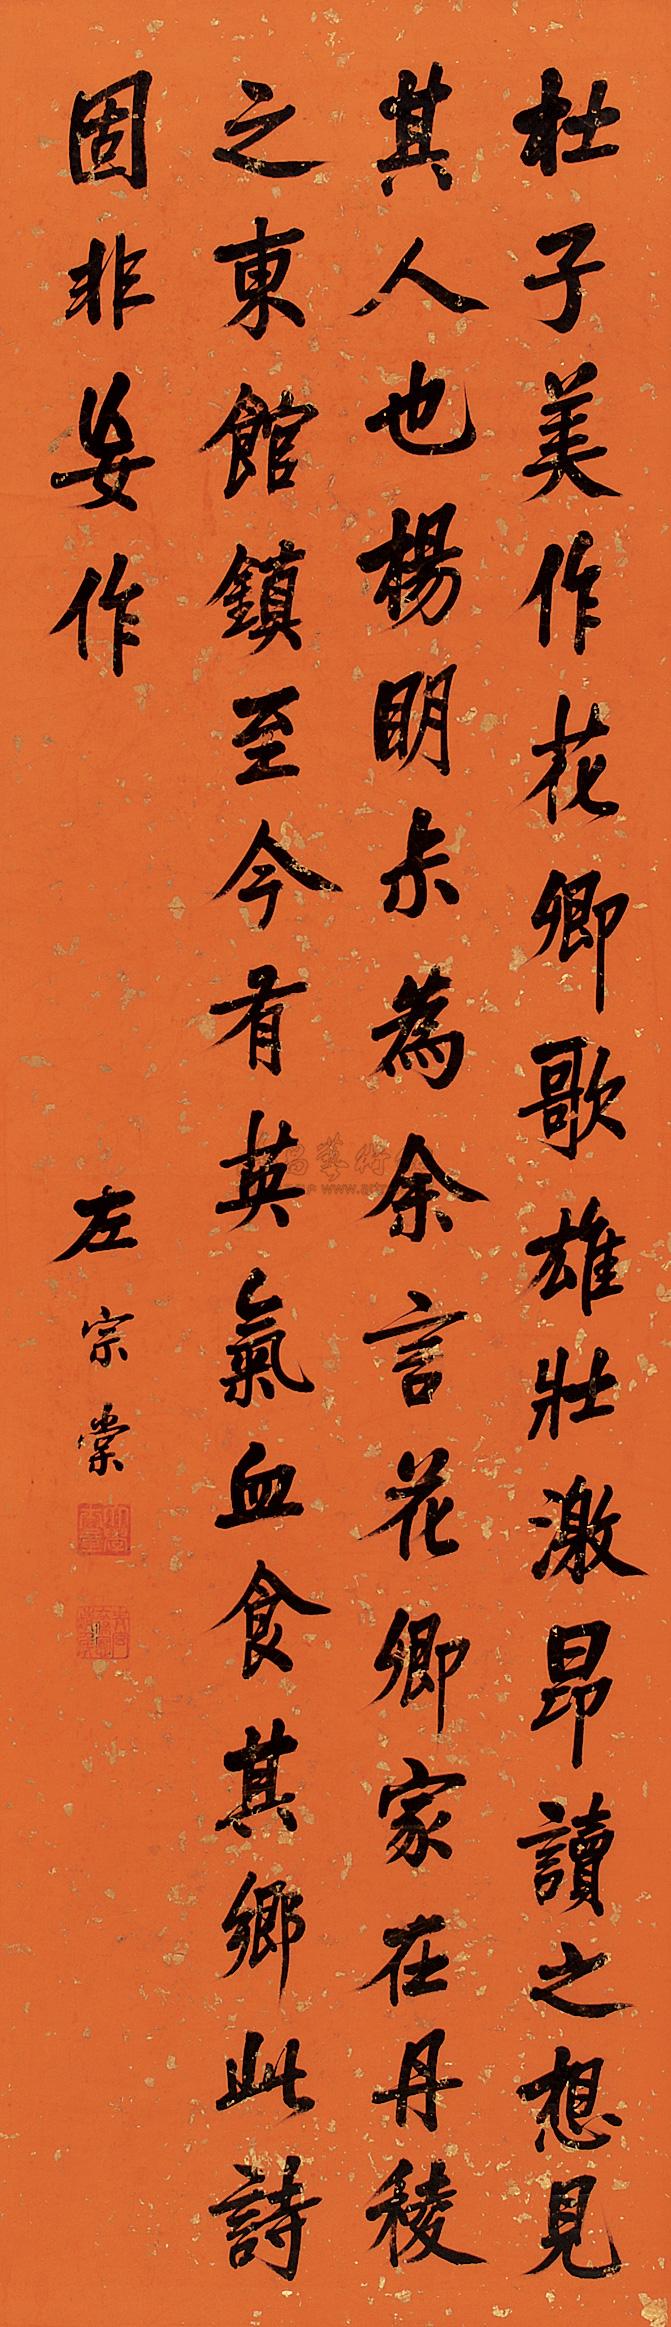 杜子美作花卿歌雄壯激昂讀之想見
其人也楊明尗為余言花卿家在丹稜
之東館鎮至今有英氣血食其鄉此詩
固非妄作
左宗棠